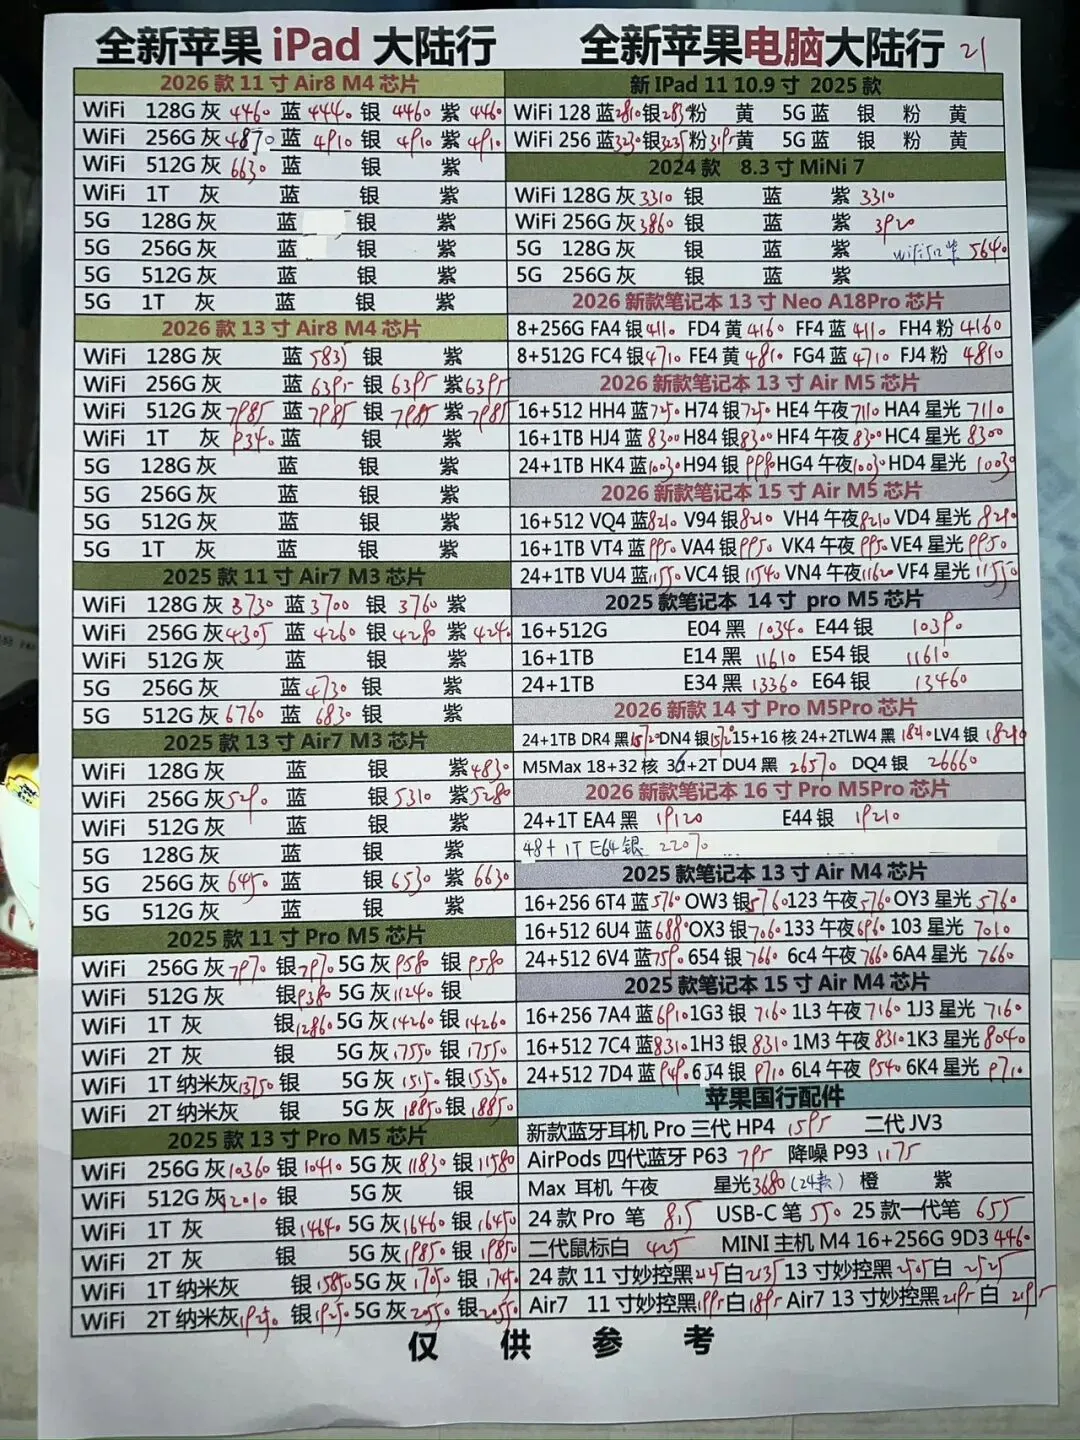 全新苹果 iPad 大陆行
2026 款 11 寸 Air8 M4 芯片
WiFi 128G 灰 4460 蓝 4440 银 4460 紫 4460
WiFi 256G 灰 4870 蓝 4910 银 4910 紫 4910
WiFi 512G 灰 6630 蓝 银 紫
WiFi 1T 灰 蓝 银 紫
5G 128G 灰 蓝 银 紫
5G 256G 灰 蓝 银 紫
5G 512G 灰 蓝 银 紫
5G 1T 灰 蓝 银 紫
2026 款 13 寸 Air8 M4 芯片
WiFi 128G 灰 蓝 银 紫
WiFi 256G 灰 蓝 6395 银 6395 紫 6395
WiFi 512G 灰 7985 蓝 7985 银 7985 紫 7985
WiFi 1T 灰 9340 蓝 银 紫
5G 128G 灰 蓝 银 紫
5G 256G 灰 蓝 银 紫
5G 512G 灰 蓝 银 紫
5G 1T 灰 蓝 银 紫
2025 款 11 寸 Air7 M3 芯片
WiFi 128G 灰 3730 蓝 3700 银 3760 紫
WiFi 256G 灰 4305 蓝 4260 银 4280 紫 4240
WiFi 512G 灰 蓝 银 紫
5G 256G 灰 蓝 4730 银 紫
5G 512G 灰 6760 蓝 6830 银 紫
2025 款 13 寸 Air7 M3 芯片
WiFi 128G 灰 蓝 银 紫 4830
WiFi 256G 灰 5290 蓝 银 5310 紫 5280
WiFi 512G 灰 蓝 银 紫
5G 128G 灰 蓝 银 紫
5G 256G 灰 6450 蓝 银 6530 紫 6630
5G 512G 灰 蓝 银 紫
2025 款 11 寸 Pro M5 芯片
WiFi 256G 灰 7970 银 7970 5G 灰 9580 银 9580
WiFi 512G 灰 银 9380 5G 灰 11240 银
WiFi 1T 灰 银 12860 5G 灰 14260 银 14260
WiFi 2T 灰 银 5G 灰 17550 银 17550
WiFi 1T 纳米灰 13750 银 5G 灰 15150 银 15350
WiFi 2T 纳米灰 银 5G 灰 18850 银 18850
2025 款 13 寸 Pro M5 芯片
WiFi 256G 灰 10360 银 10410 5G 灰 11830 银 11580
WiFi 512G 灰 12010 银 5G 灰 银
WiFi 1T 灰 银 14640 5G 灰 16460 银 16450
WiFi 2T 灰 银 5G 灰 19850 银 19850
WiFi 1T 纳米灰 银 15850 5G 灰 17050 银 17450
WiFi 2T 纳米灰 19250 银 19250 5G 灰 20550 银 20550
全新苹果电脑大陆行 21
新 IPad 11 10.9 寸 2025 款
WiFi 128 蓝 2810 银 2835 粉 黄 5G 蓝 银 粉 黄
WiFi 256 蓝 3230 银 3235 粉 3195 黄 5G 蓝 银 粉 黄
2024 款 8.3 寸 MiNi 7
WiFi 128G 灰 3310 银 蓝 紫 3310
WiFi 256G 灰 3860 银 蓝 紫 3920
5G 128G 灰 银 蓝 紫 wifi512紫 5640
5G 256G 灰 银 蓝 紫
2026 新款笔记本 13 寸 Neo A18Pro 芯片
8+256G FA4 银 4110 FD4 黄 4160 FF4 蓝 4110 FH4 粉 4160
8+512G FC4 银 4710 FE4 黄 4810 FG4 蓝 4710 FJ4 粉 4810
2026 新款笔记本 13 寸 Air M5 芯片
16+512 HH4 蓝 7250 H74 银 7250 HE4 午夜 7110 HA4 星光 7110
16+1TB HJ4 蓝 8300 H84 银 8300 HF4 午夜 8300 HC4 星光 8300
24+1TB HK4 蓝 10030 H94 银 9980 HG4 午夜 10030 HD4 星光 10030
2026 新款笔记本 15 寸 Air M5 芯片
16+512 VQ4 蓝 8210 V94 银 8210 VH4 午夜 8210 VD4 星光 8210
16+1TB VT4 蓝 9950 VA4 银 9950 VK4 午夜 9950 VE4 星光 9950
24+1TB VU4 蓝 11550 VC4 银 11540 VN4 午夜 11620 VF4 星光 11550
2025 款笔记本 14 寸 pro M5 芯片
16+512G E04 黑 10340 E44 银 10390
16+1TB E14 黑 11610 E54 银 11610
24+1TB E34 黑 13360 E64 银 13460
2026 新款 14 寸 Pro M5Pro 芯片
24+1TB DR4 黑 15720 DN4 银 15720 15+16 核 24+2TLW4 黑 18210 LV4 银 18210
M5Max 18+32 核 36+2T DU4 黑 26570 DQ4 银 26660
2026 新款笔记本 16 寸 Pro M5Pro 芯片
24+1T EA4 黑 19120 E44 银 19210
48+1T E64 银 22070
2025 款笔记本 13 寸 Air M4 芯片
16+256 6T4 蓝 5760 OW3 银 5760 123 午夜 5760 OY3 星光 5760
16+512 6U4 蓝 6880 OX3 银 7060 133 午夜 6960 103 星光 7010
24+512 6V4 蓝 7590 654 银 7660 6c4 午夜 7660 6A4 星光 7660
2025 款笔记本 15 寸 Air M4 芯片
16+256 7A4 蓝 6910 1G3 银 7160 1L3 午夜 7160 1J3 星光 7160
16+512 7C4 蓝 8310 1H3 银 8310 1M3 午夜 8310 1K3 星光 8040
24+512 7D4 蓝 9490 6J4 银 9710 6L4 午夜 9540 6K4 星光 9710
苹果国行配件
新款蓝牙耳机 Pro 三代 HP4 1595 二代 JV3
AirPods 四代蓝牙 P63 795 降噪 P93 1175
Max 耳机 午夜 星光 3680 (24款) 橙 紫
24 款 Pro 笔 815 USB-C 笔 550 25 款一代笔 655
二代鼠标白 425 MINI 主机 M4 16+256G 9D3 4460
24 款 11 寸妙控黑 2125 白 2135 13 寸妙控黑 2505 白 2525
Air7 11 寸妙控黑 1995 白 1895 Air7 13 寸妙控黑 2195 白 2195
仅 供 参 考